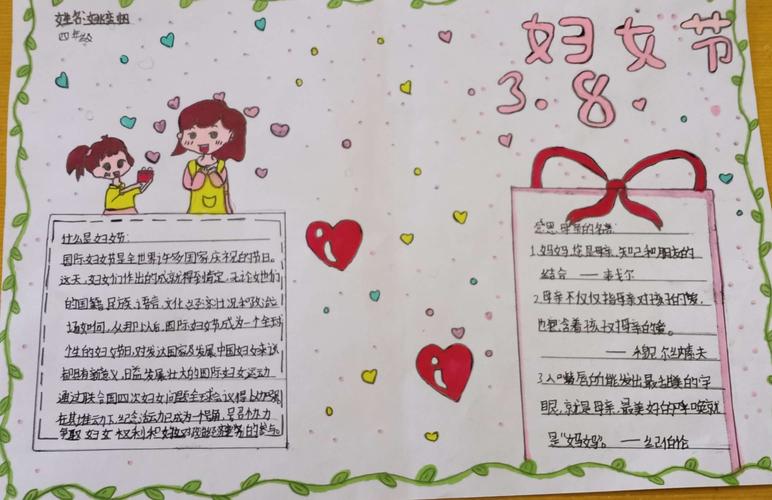 姓名:
四年级
妇女节
3.8
什么是妇女节:
国际妇女节是全世界许多国家庆祝的节日。
这天,妇女们作出的成就得到肯定,无论她们
的国籍、民族、语言、文化、经济状况和政治立
场如何,从那以后,国际妇女节成为一个全球
个生的妇女节日,对发达国家及发展中国妇女来说
都有新意义,日益发展壮大的国际妇女运动
通过联合国四次妇女问题全球会议得加强
在其推动下,纪念活动已成为一个号角,号召协力
争取妇女权利和妇女对政治经济的参与。
感恩母亲的名言:
1.妈妈,您是母亲、知己和朋友的
结合 ——泰戈尔
2.母亲不仅仅指母亲对孩子的爱,
也包含着孩子对母亲的爱。
——穆尔纳夫
3.人嘴唇所能发出最甜美的字
眼,就是母亲,最美好的呼唤就
是“妈妈”。 ——纪伯伦